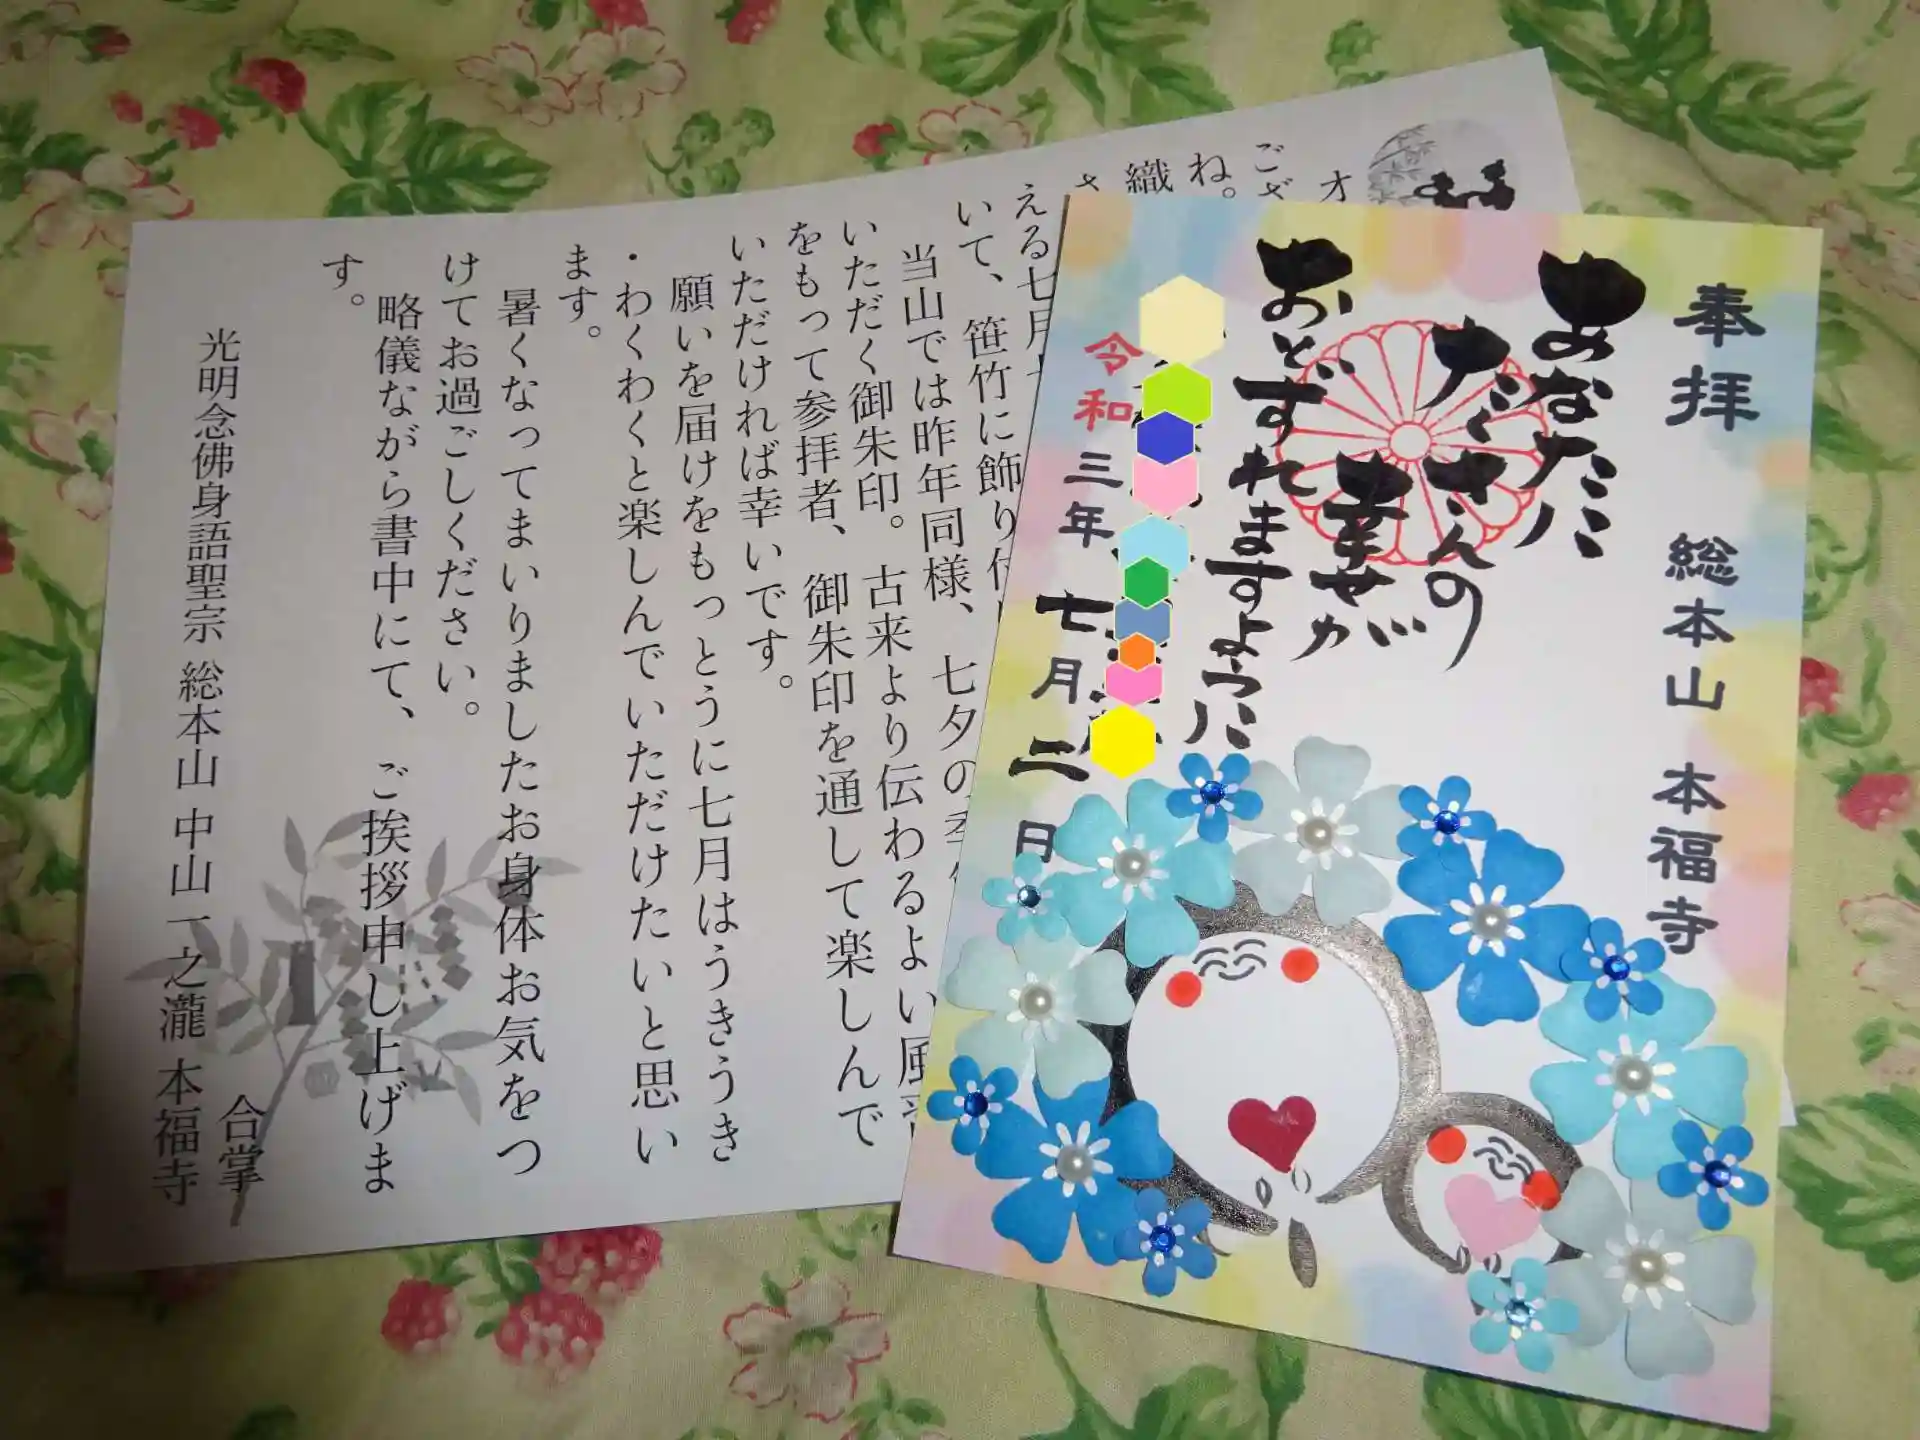 奉拝 総本山 本福寺
あなたに
たくさんの
幸せが
おとずれますように
令和三年七月二日
オ
ござ
ね。
織
える七月
いて、笹竹に飾り付
七夕の
当山では昨年同様、古来より伝わるよい風
いただく御朱印。
をもって参拝者、御朱印を通して楽しんで
いただければ幸いです。
願いを届けをもっとうに七月はうきうき
・わくわくと楽しんでいただけたいと思い
ます。
暑くなってまいりましたお身体お気をつ
けてお過ごしください。
略儀ながら書中にて、ご挨拶申し上げま
す。
合掌
光明念佛身語聖宗 総本山 中山一之瀧 本福寺